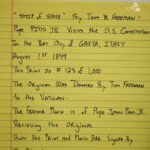 "SHIP of STATE" By Tom W. FREEMAN -
Pope PIUS IX Visits the U.S. Constitution
In the Port City of GAETA, ITALY
August 1st 1849
This Print Is # 123 of 1,000
The Original Was Donated By Tom FREEMAN
to the Vatican.
The FRAMED Photo is of Pope John Paul II
Receiving the Original
Both the Print and Photo Are Signed By